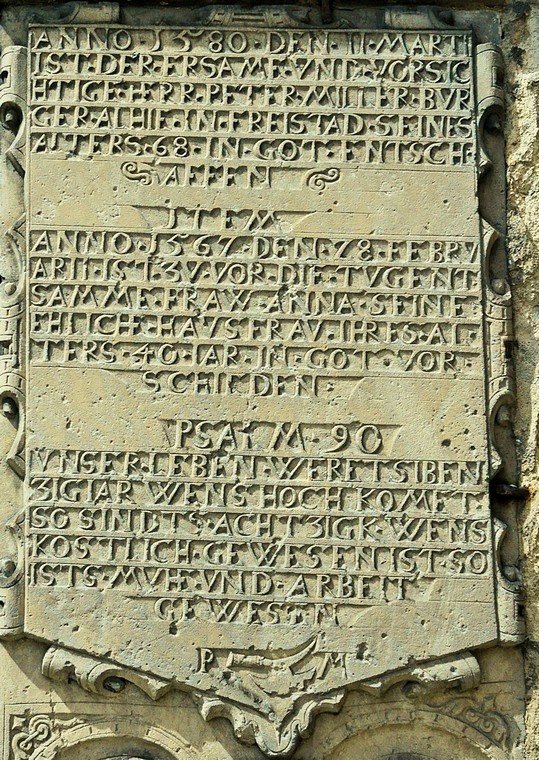 ANNO·1580·DEN·11·MARTI
IST·DER·ERSAME·VND·VORSIC
HTIGE·HERR·PETER·MILLER·BVR
GER·ALHIE·IN·FREISTAD·SEINES
ALTERS·68·IN·GOT·ENTSCH
LAFFEN
ITEM
ANNO·1567·DEN·28·FEBRV
ARII·IST·ZVVOR·DIE·TVGENT
SAMME·FRAW·ANNA·SEINE
EHLICHE·HAVSFRAV·IHRES·AL·
TERS·40·IAR·IN·GOT·VOR·
SCHIEDEN·
PSALM·90
VNSER·LEBEN·WERET·SIBEN
ZIG IAR WENS HOCH KOMET·
SO SINDTS·ACHTZIGK·WENS
KOSTLICH·GEWESEN·IST·SO
ISTS·MVHE·VND·ARBEIT
GEWESEN
P M